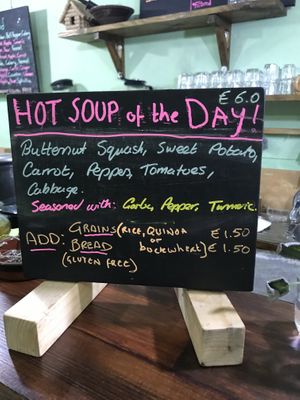 £6.0
HOT SOUP of the DAY!
Butternut Squash, Sweet Potato,
Carrot, Pepper, Tomatoes,
Cabbage.
Seasoned with: Garlic, Pepper, Turmeric.
ADD: GRAINS (RICE, QUINOA or BUCKWHEAT) £1.50
BREAD £1.50
(GLUTEN FREE)